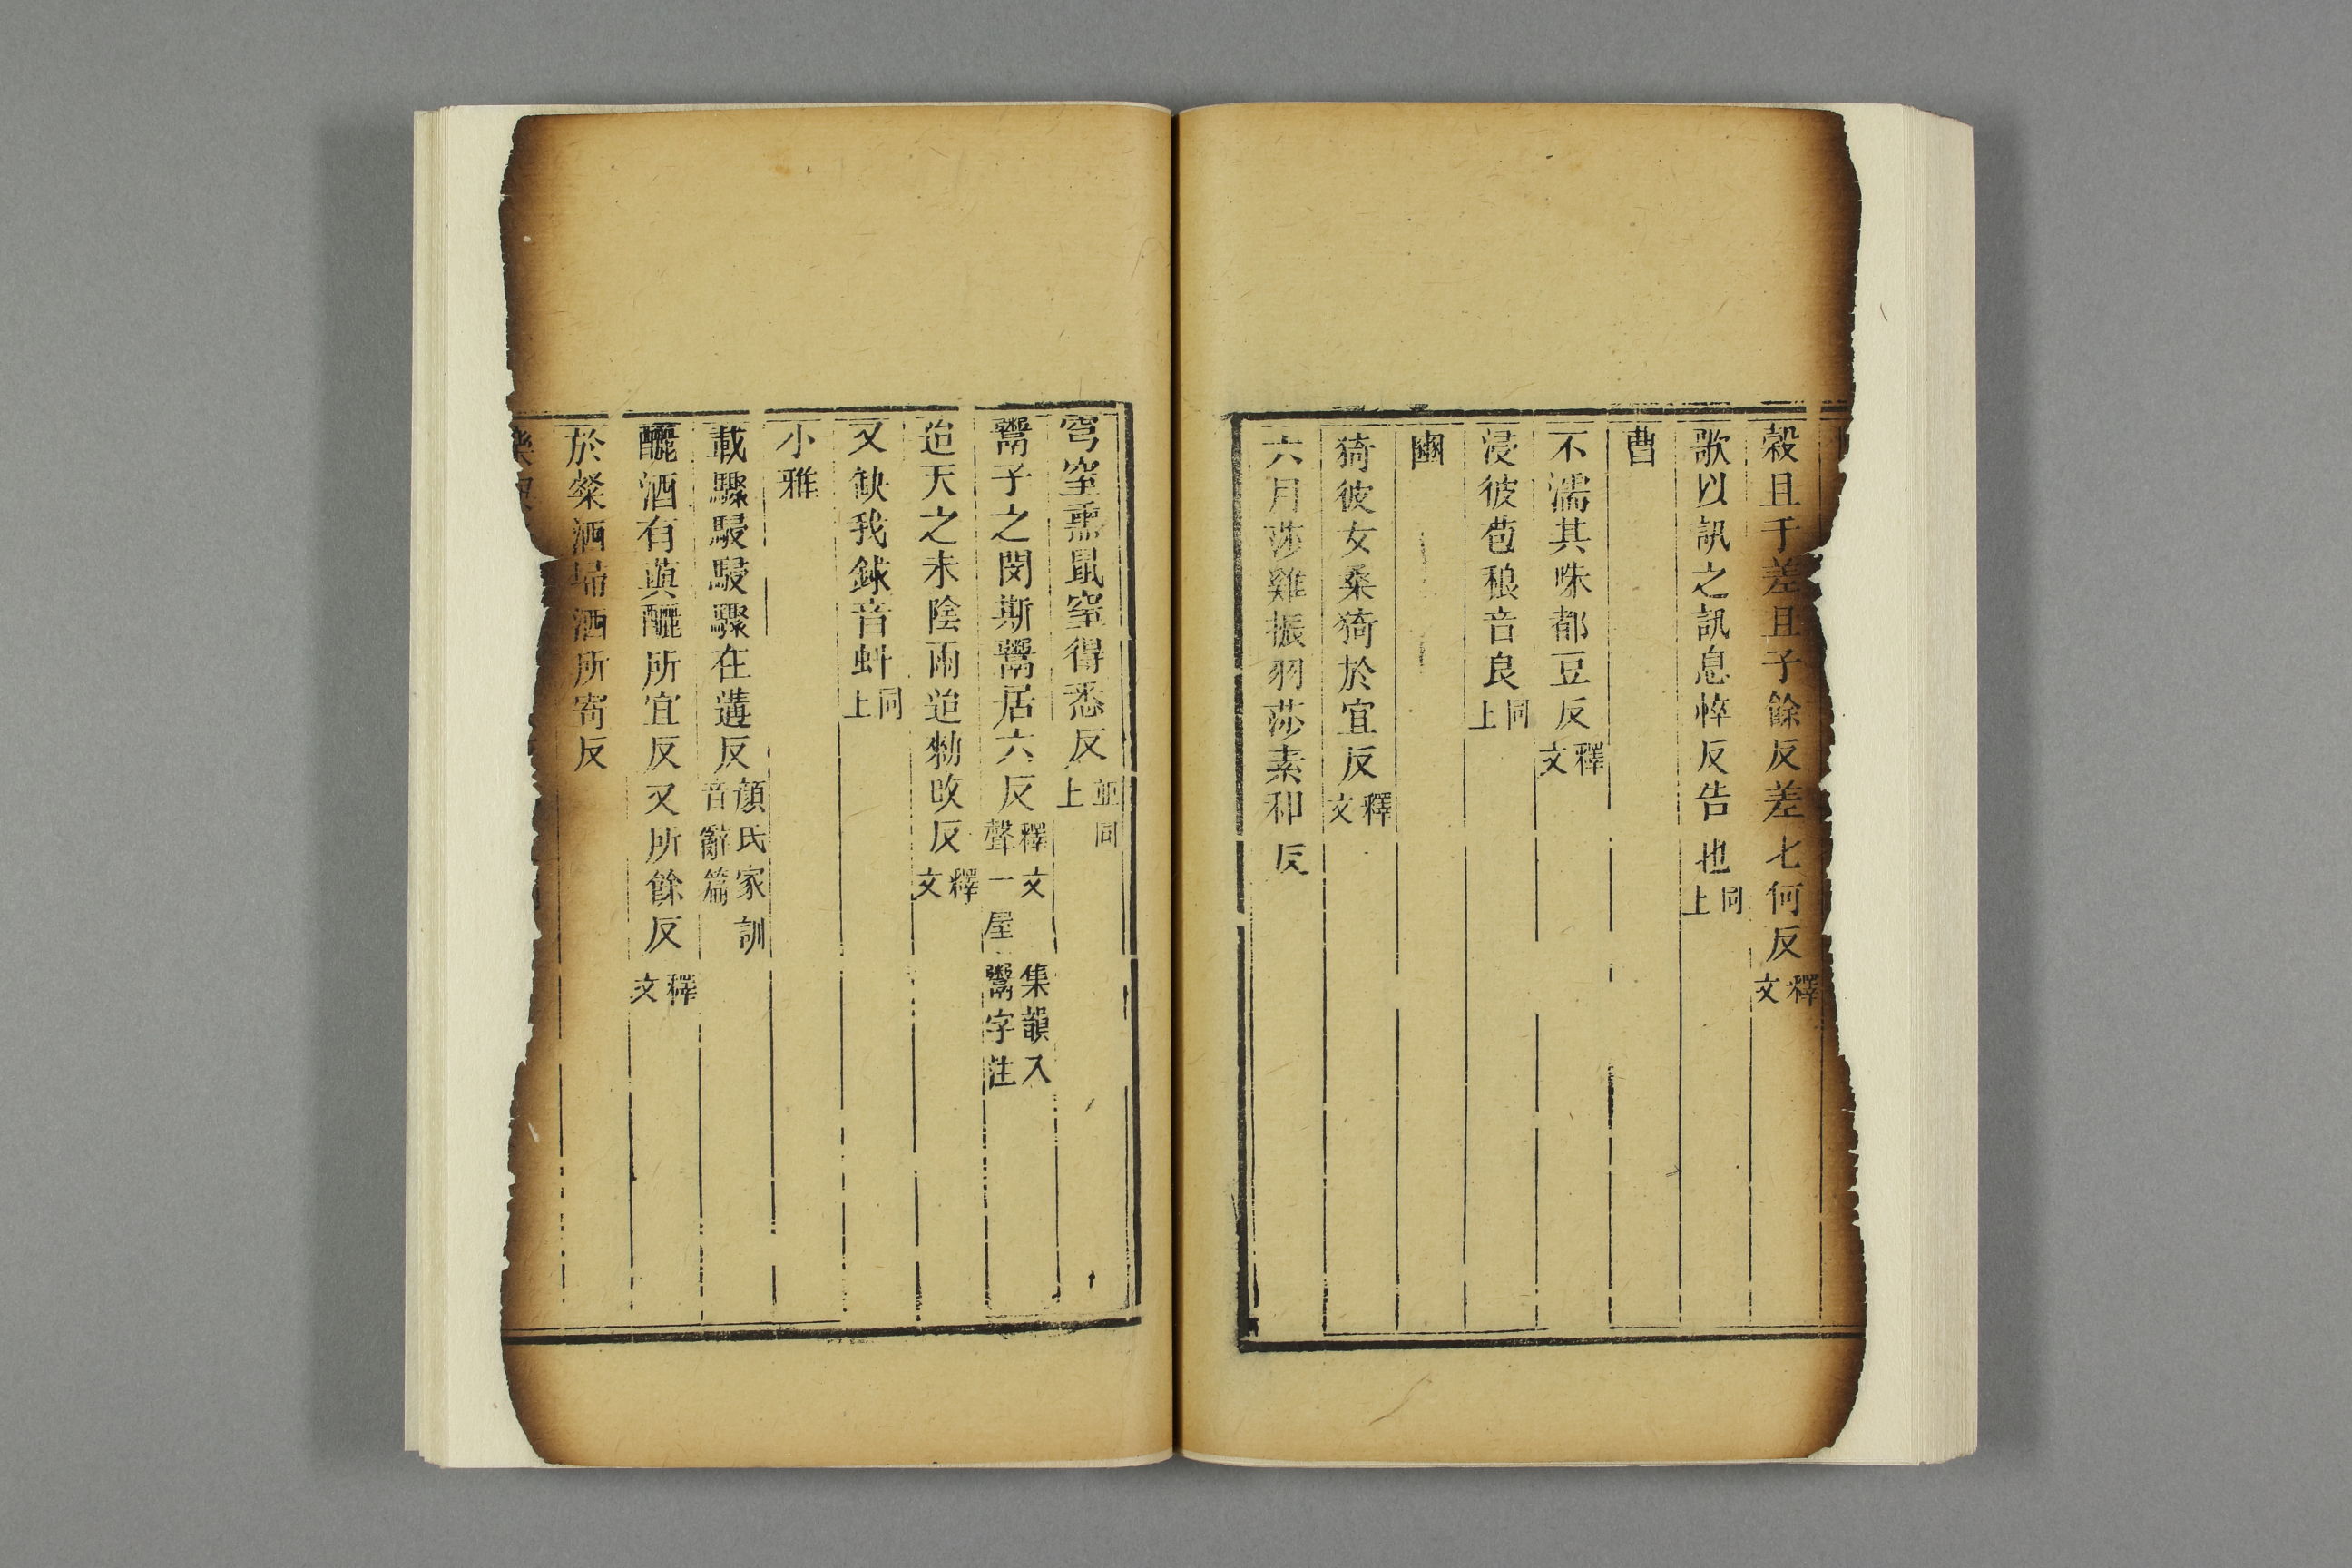 穀且于差且子餘反差七何反釋文
歌以訊之訊息悴反告也同上
曹
不濡其咮咮都豆反釋文
浸彼苞稂音良同上
豳
猗彼女桑猗於宜反釋文
六月莎雞振羽莎素和反
穹窒熏鼠窒得悉反並同上
鬻子之閔斯鬻居六反釋文集韻入聲一屋鬻字注
迨天之未陰雨迨勑改反釋文
又缺我銶音虯同上
小雅
載驟駸駸驟在遘反顏氏家訓音辭篇
釃酒有藇釃所宜反又所餘反釋文
於粲洒埽洒所寄反